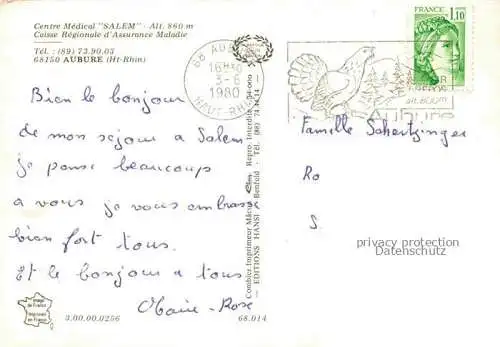 Centre Médical "SALEM" - Alt. 860 m
Caisse Régionale d'Assurance Maladie
Tél. : (89) 73.90.03
68150 AUBURE (Ht-Rhin)
68 AUBURE
16H
3-6
1980
HAUT-RHIN
FRANCE
1,10
Aubure
Bien le bonjour
de mon séjour a Salem
je pense beaucoup
a vous je vous embrasse
bien fort tous.
Et le bonjour a tous
Marie-Rose
Combier Imprimeur Mâcon
EDITIONS HANSI - Benfeld - Tél. (88) 74.14.14
Repro. Interdite
Famille Schertzinger
Ro
S.
privacy protection
Datenschutz
Image de France
Imprimée en France
3.00.00.0256
68.014